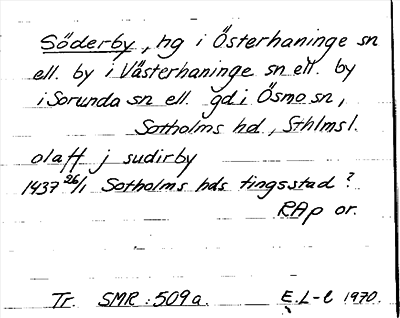 Söderby, hg i Österhaninge sn
ell. by i Västerhaninge sn ell. by
i Sorunda sn ell. gd i Ösmo sn,
Sotholms hd, Sthlms l.
olaff j sudirby
1437 26/1 Sotholms hds tingsstad?
RAp or.
Tr. SMR: 509a. E. L-l 1970.